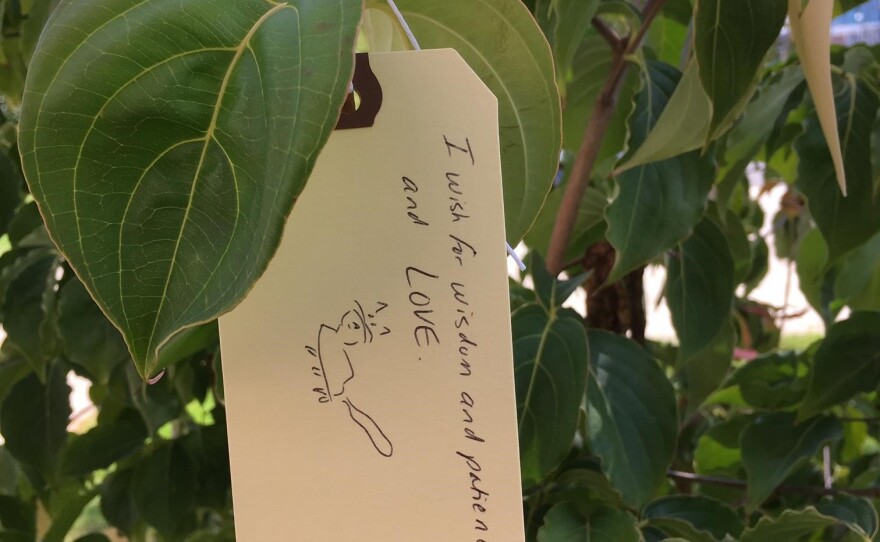 I wish for wisdom and patien
and LOVE.